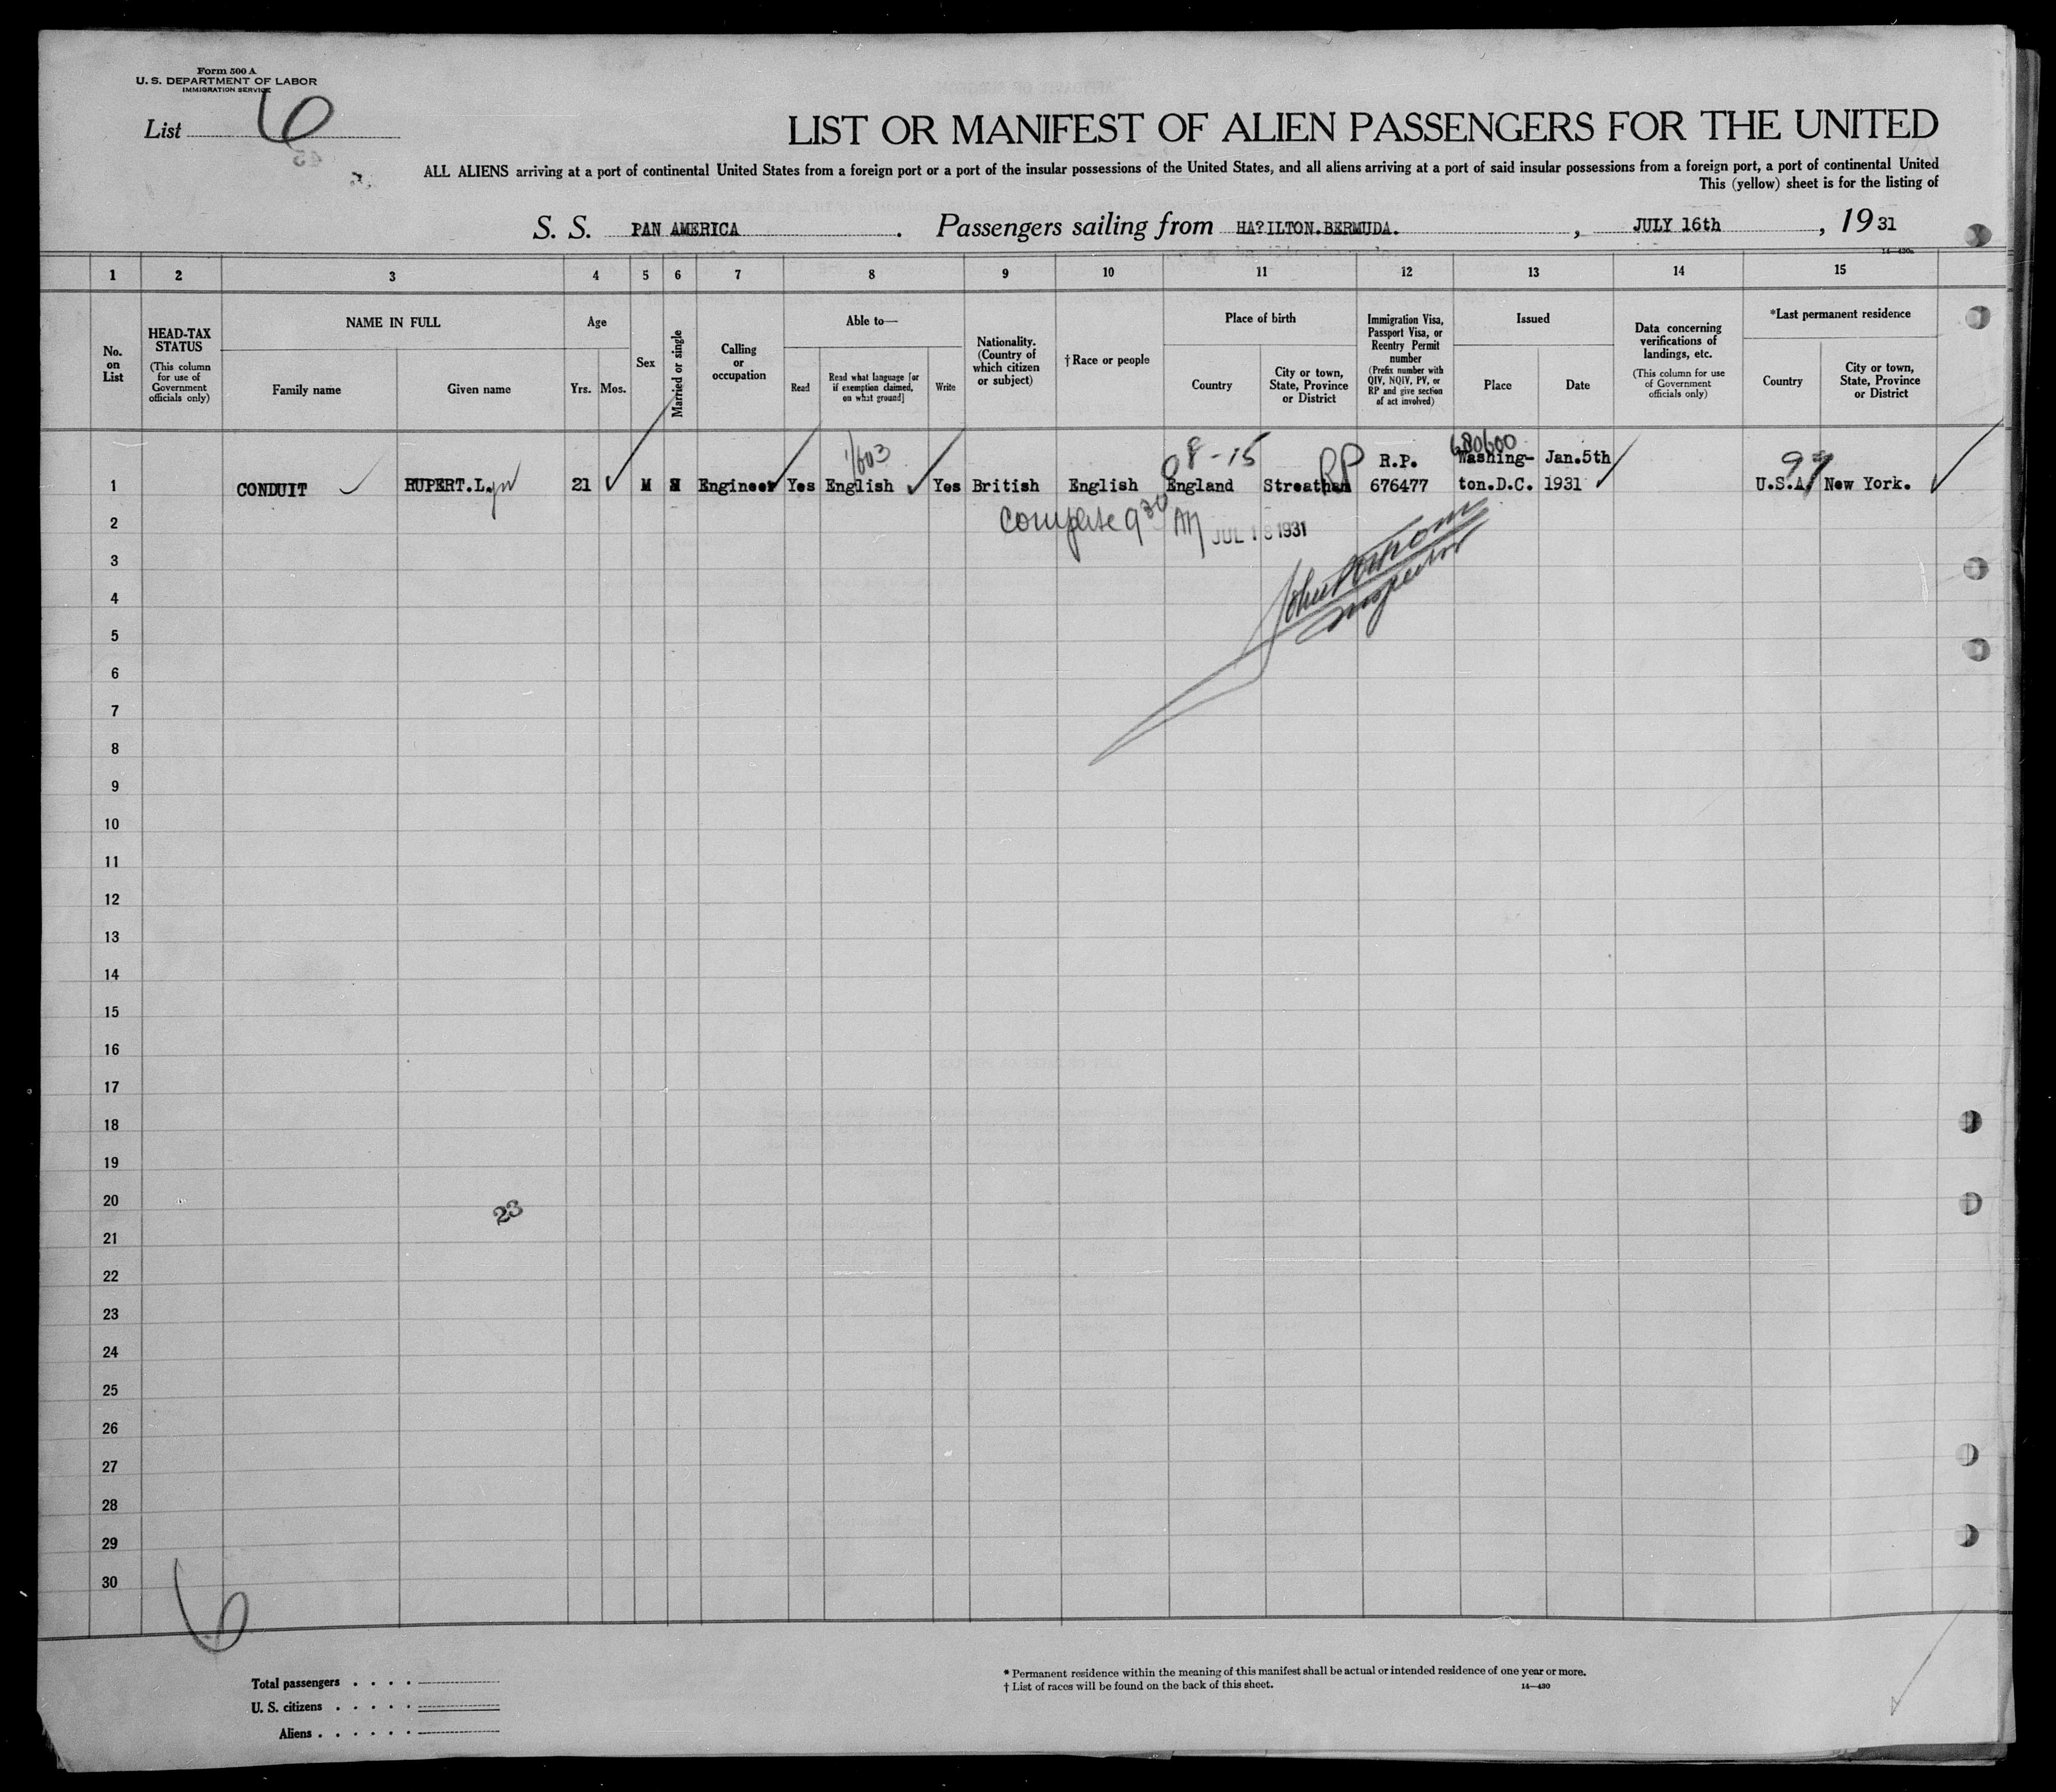 Form 500 A
U. S. DEPARTMENT OF LABOR
IMMIGRATION SERVICE
List 6
LIST OR MANIFEST OF ALIEN PASSENGERS FOR THE UNITED
ALL ALIENS arriving at a port of continental United States from a foreign port or a port of the insular possessions of the United States, and all aliens arriving at a port of said insular possessions from a foreign port, a port of continental United
This (yellow) sheet is for the listing of
S. S. PAN AMERICA. Passengers sailing from HA?ILTON.BERMUDA. , JULY 16th , 19 31
14—430a
1 2 3 4 5 6 7 8 9 10 11 12 13 14 15
No. on List
HEAD-TAX STATUS
(This column for use of Government officials only)
NAME IN FULL
Family name
Given name
Age
Yrs. Mos.
Sex
Married or single
Calling or occupation
Able to—
Read
Read what language [or if exemption claimed, on what ground]
Write
Nationality. (Country of which citizen or subject)
†Race or people
Place of birth
Country
City or town, State, Province or District
Immigration Visa, Passport Visa, or Reentry Permit number
(Prefix number with QIV, NQIV, PV, or RP and give section of act involved)
Issued
Place
Date
Data concerning verifications of landings, etc.
(This column for use of Government officials only)
*Last permanent residence
Country
City or town, State, Province or District
1/603 8-15 RP R.P. 680600 Washing- Jan.5th 97
1 CONDUIT RUPERT.L. 21 M Engineer Yes English Yes British English England Streatham 676477 ton.D.C. 1931 U.S.A. New York.
2 Complete 9 30 AM JUL 18 1931
3
4 John
Inspector
5
6
7
8
9
10
11
12
13
14
15
16
17
18
19
20
23
21
22
23
24
25
26
27
28
29
30
6
Total passengers . . . .
U. S. citizens . . . . .
Aliens . . . . . .
* Permanent residence within the meaning of this manifest shall be actual or intended residence of one year or more.
† List of races will be found on the back of this sheet.
14—430